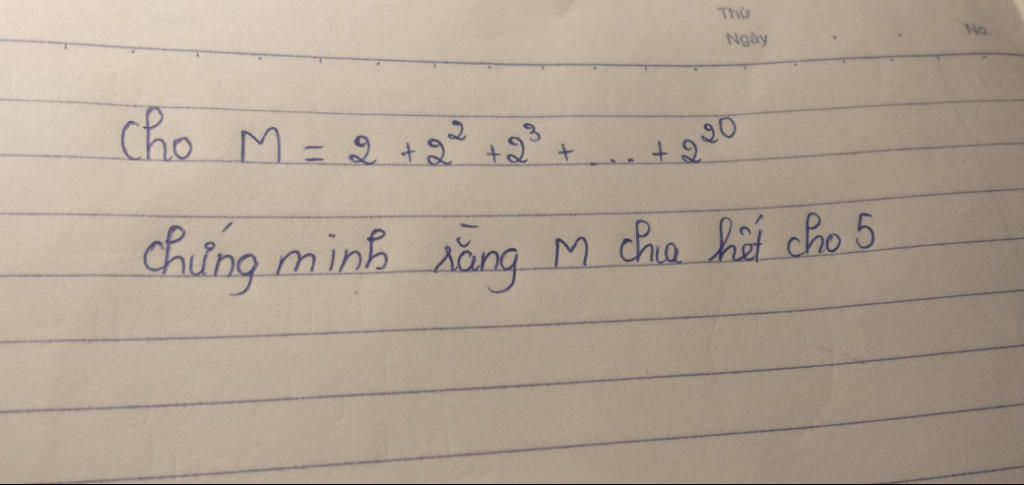 Thứ
Ngày
No.
Cho M = 2 + 2² + 2³ + ... + 2²⁰
Chứng minh rằng M chia hết cho 5